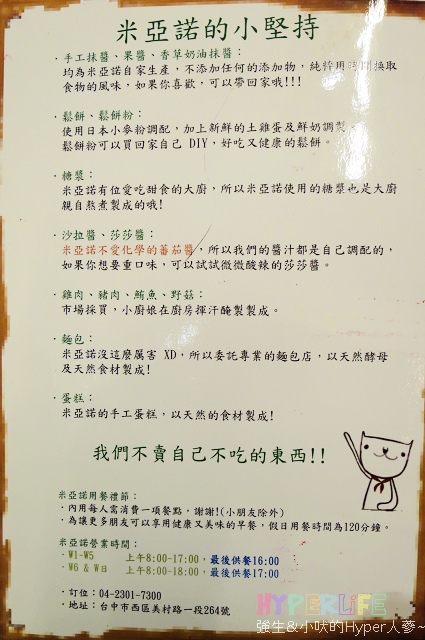 米亞諾的小堅持
·手工抹醬、果醬、香草奶油抹醬：
均為米亞諾自家生產，不添加任何的添加物，純粹用時間換取
食物的風味，如果你喜歡，可以帶回家哦!!!
·鬆餅、鬆餅粉：
使用日本小麥粉調配，加上新鮮的土雞蛋及鮮奶調製
鬆餅粉可以買回家自己 DIY，好吃又健康的鬆餅。
·糖漿：
米亞諾有位愛吃甜食的大廚，所以米亞諾使用的糖漿也是大廚
親自熬煮製成的哦!
·沙拉醬、莎莎醬：
米亞諾不愛化學的蕃茄醬，所以我們的醬汁都是自己調配的，
如果你想要重口味，可以試試微微酸辣的莎莎醬。
·雞肉、豬肉、鮪魚、野菇：
市場採買，小廚娘在廚房揮汗醃製製成。
·麵包：
米亞諾沒這麼厲害 XD，所以委託專業的麵包店，以天然酵母
及天然食材製成!
·蛋糕：
米亞諾的手工蛋糕，以天然的食材製成!
我們不賣自己不吃的東西!!
米亞諾用餐禮節：
·內用每人需消費一項餐點，謝謝!(小朋友除外)
·為讓更多朋友可以享用健康又美味的早餐，假日用餐時間為120分鐘。
米亞諾營業時間：
·W1-W5 上午8:00-17:00，最後供餐16:00
·W6 & W日 上午8:00-18:00，最後供餐17:00
·訂位：04-2301-7300
·地址：台中市西區美村路一段264號
HYPERLIFE
強生&小吠的Hyper人蔘~